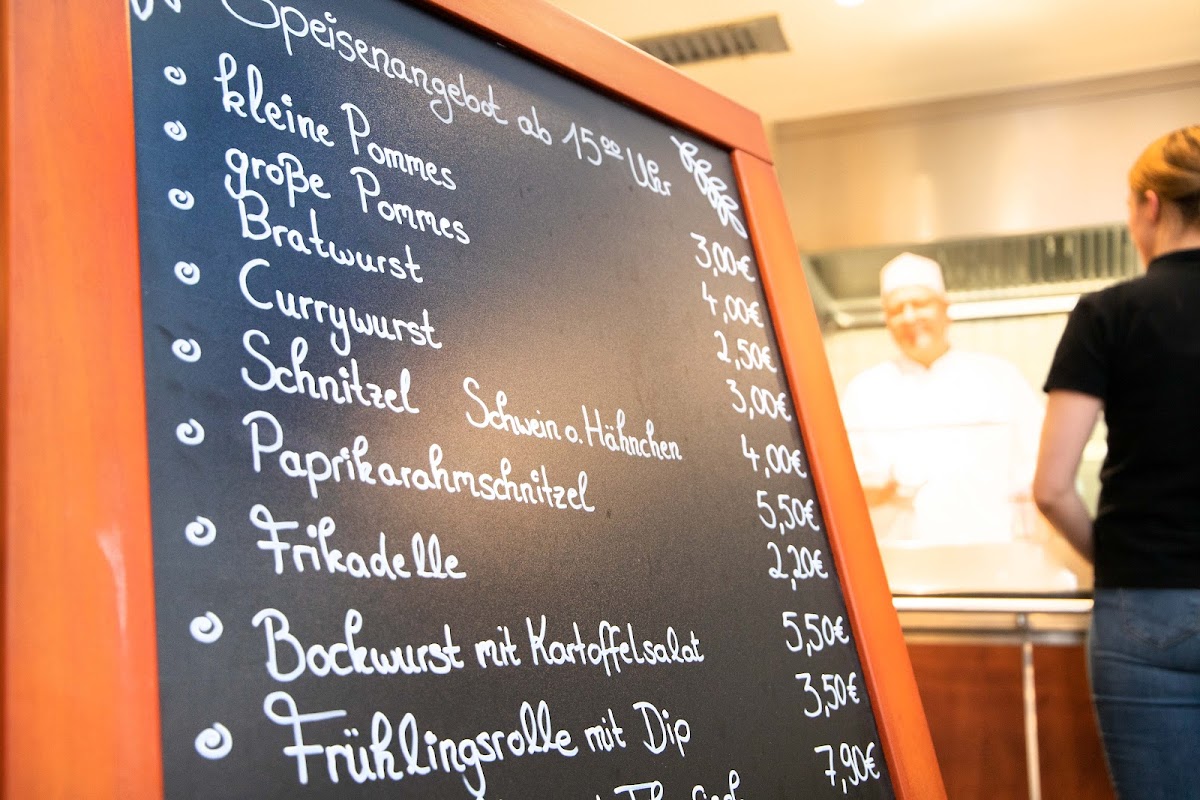 Speisenangebot ab 15⁰⁰ Uhr
kleine Pommes 3,00€
große Pommes 4,00€
Bratwurst 2,50€
Currywurst 3,00€
Schnitzel Schwein o. Hähnchen 4,00€
Paprikarahmschnitzel 5,50€
Frikadelle 2,20€
Bockwurst mit Kartoffelsalat 5,50€
Frühlingsrolle mit Dip 3,50€
7,90€